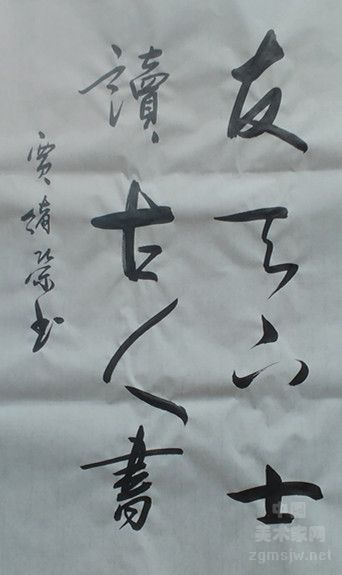 友天下士
讀古人書
賈緒榮书
中国
美术家网
zgmsjw.net